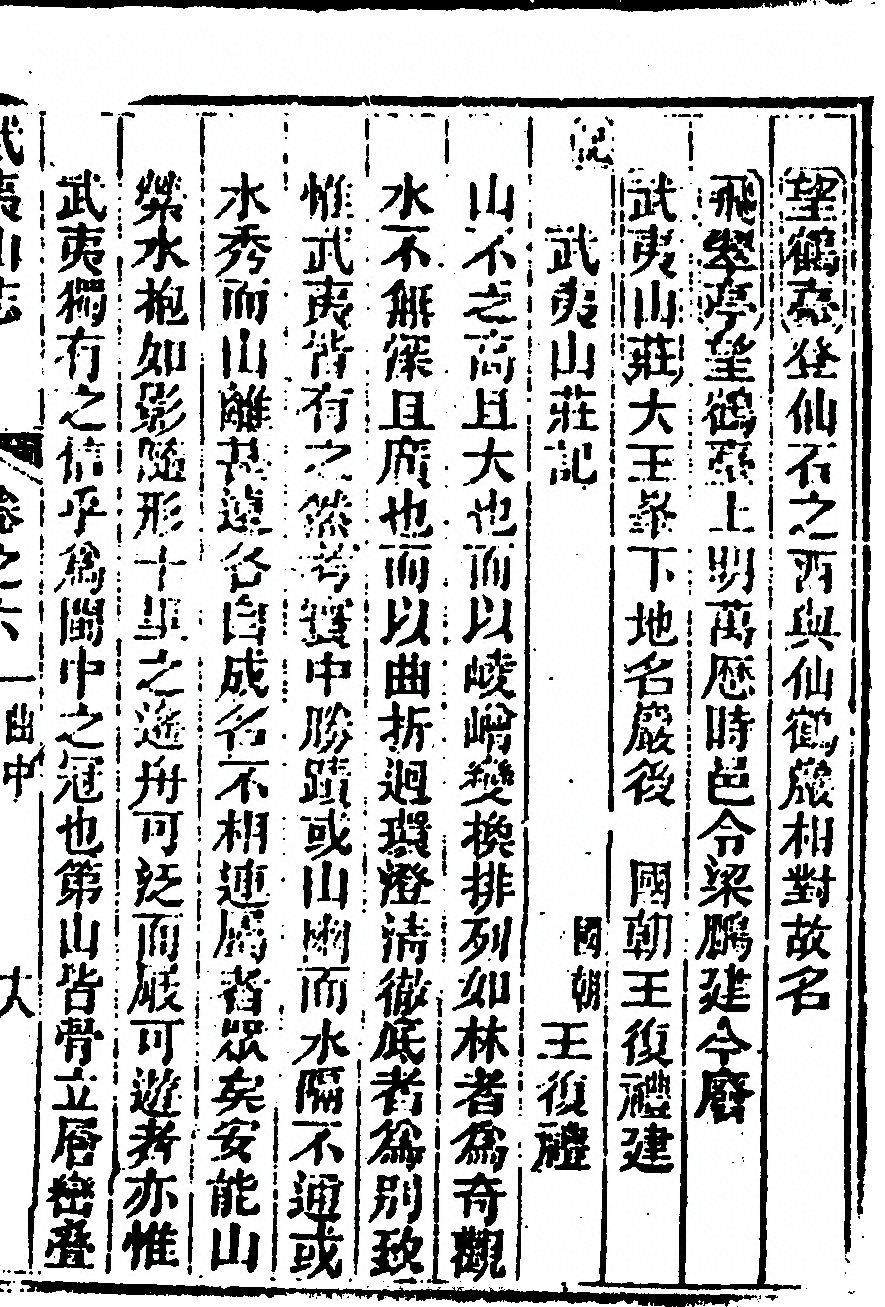 望鶴臺登仙石之西與仙鶴巖相對故名
飛翠亭望鶴臺上明萬歷時邑令梁鵬建今廢
武夷山莊大王峯下地名巖後 國朝王復禮建
記
武夷山莊記 國朝王復禮
山不之高且大也而以崚嶒變換排列如林者為奇觀
水不無深且廣也而以曲折迴環澄清徹底者為別致
惟武夷皆有之然考寰中勝蹟或山幽而水隔不通或
水秀而山離甚遠各自成名不相連屬者眾矣安能山
縈水抱如影隨形十里之遙舟可泛而巖可遊者亦惟
武夷獨有之信乎為閩中之冠也第山皆骨立層巒疊
武夷山志 卷之六 一曲中 大